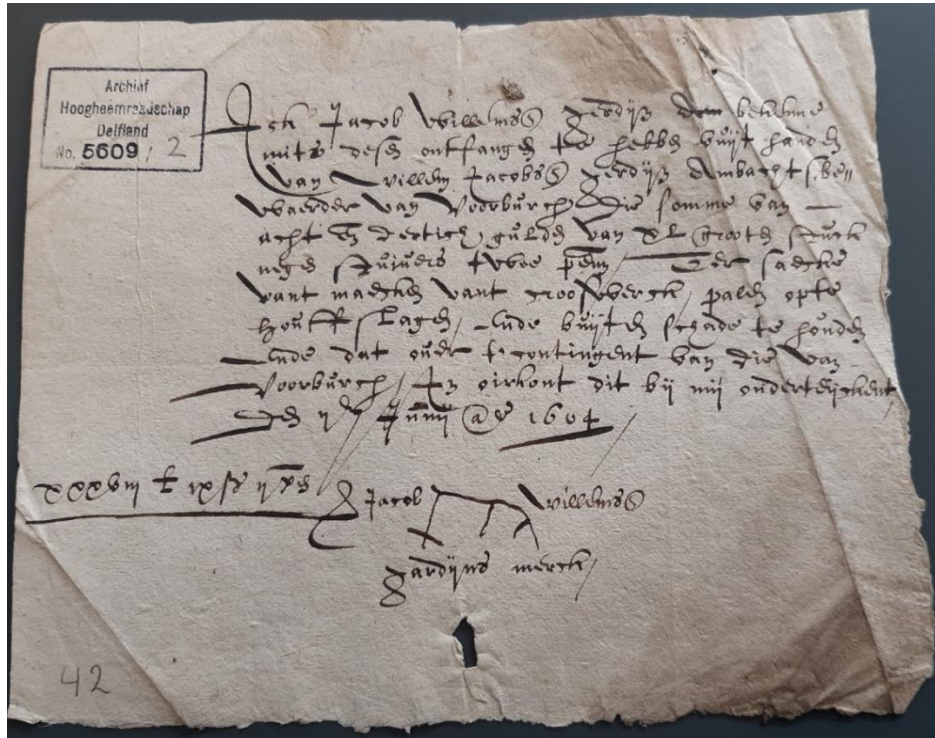 Archief
Hoogheemraadschap
Delfland
No. 5609 / 2
Ick Jacob Willemss gerdijn bekenne
mits desen ontfangen te hebben vuijt handen
van Willem Jacobss gerdijn Ambachtsbe„
waerder van Voorburch die somme van —
acht en dertich gulden van XL grooten stuck
negen stuivers twee penn Ter saecke
vant maecken vant palen opte
houff slagen, Ende buijten schade te houden
Ende dat over t contingent van die van
Voorburch, In oirkont dit bij mij onderteijckent
Den Junij 1604
xxxviij £ ix st ij
Jacob Willemss
gardijns merck
42